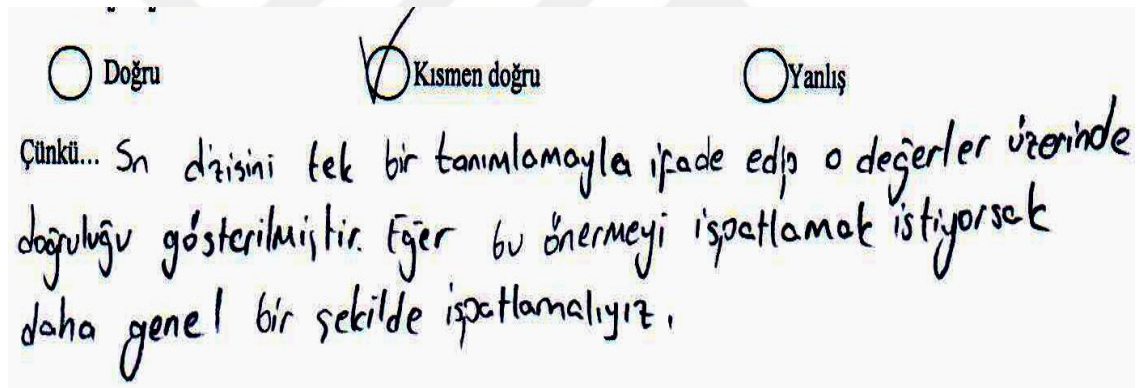 Doğru Kısmen doğru Yanlış
Çünkü... Sn dizisini tek bir tanımlamayla ifade edip o değerler üzerinde
doğruluğu gösterilmiştir. Eğer bu önermeyi işpatlamak istiyorsak
daha genel bir şekilde işpatlamalıyız.